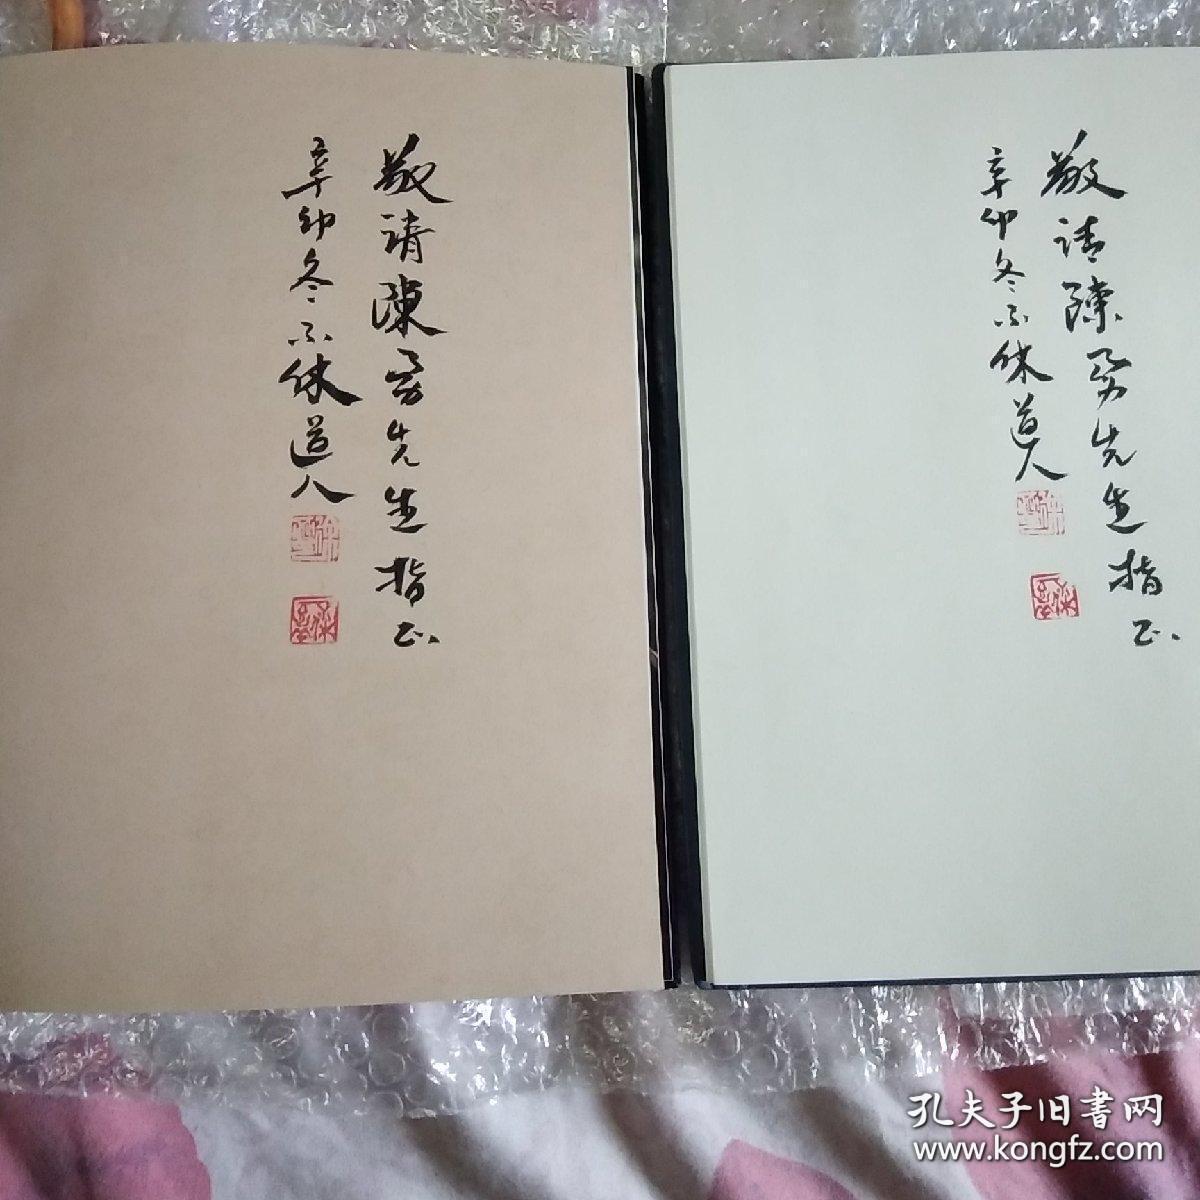 敬请陳勇先生指正
辛卯冬不休道人
敬请陳勇先生指正
辛卯冬不休道人
孔夫子旧書网
www.kongfz.com